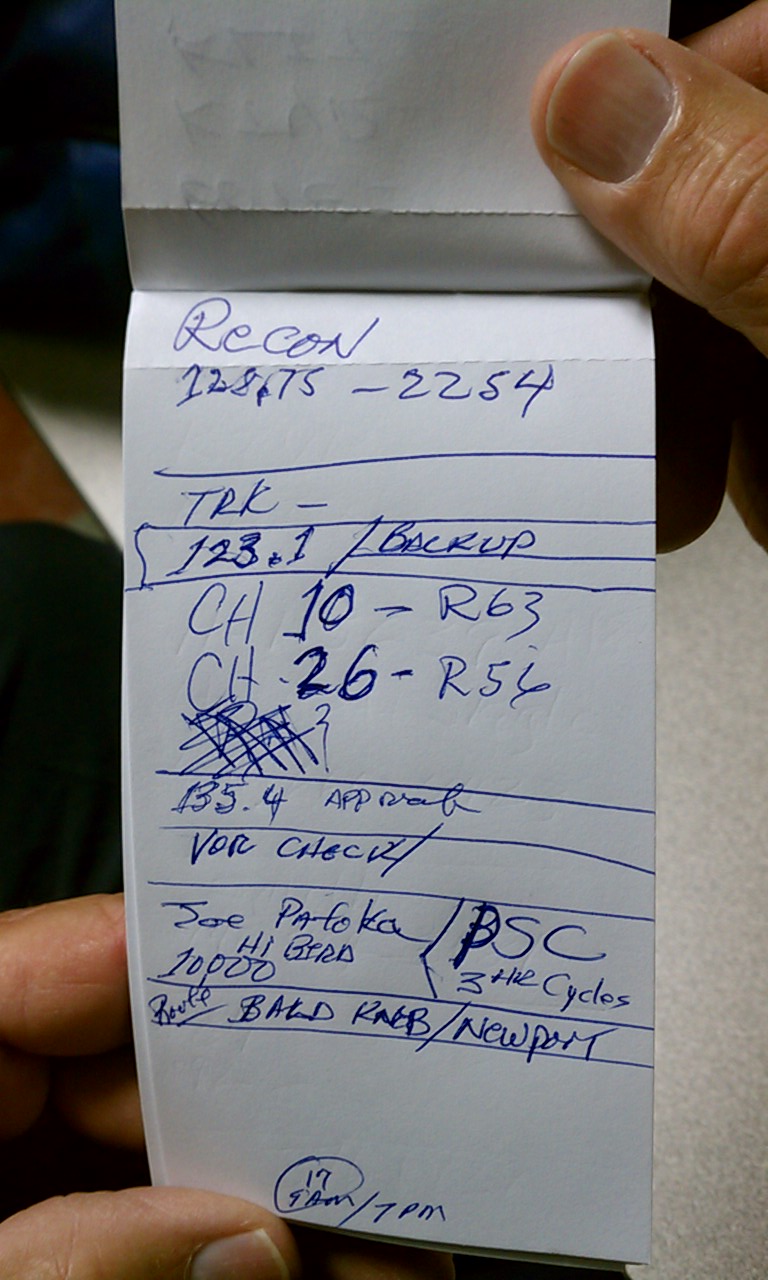 Recon
128.75 - 2254
TRK -
123.1 / BACKUP
CH 10 - R63
CH 26 - R56
135.4 Approach
VOR CHECK /
Joe Patoka
Hi BIRD
10,000
BSC
3 HR Cycles
Route BALD KNOB / Newport
17
9AM / 7 PM